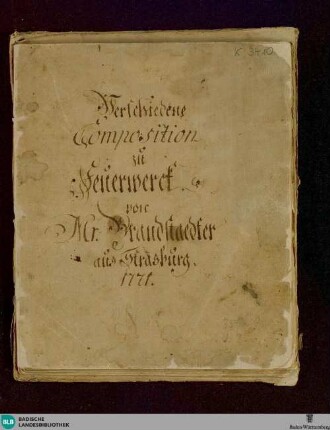 K 3410
Verschiedene
Composition
zu
Feuerwerck
von
Mr. Brandstaedter
aus Strasburg.
1771.
BLB
BADISCHE
LANDESBIBLIOTHEK
Baden-Württemberg